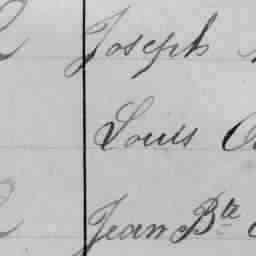 Joseph
Louis
Jean Bte